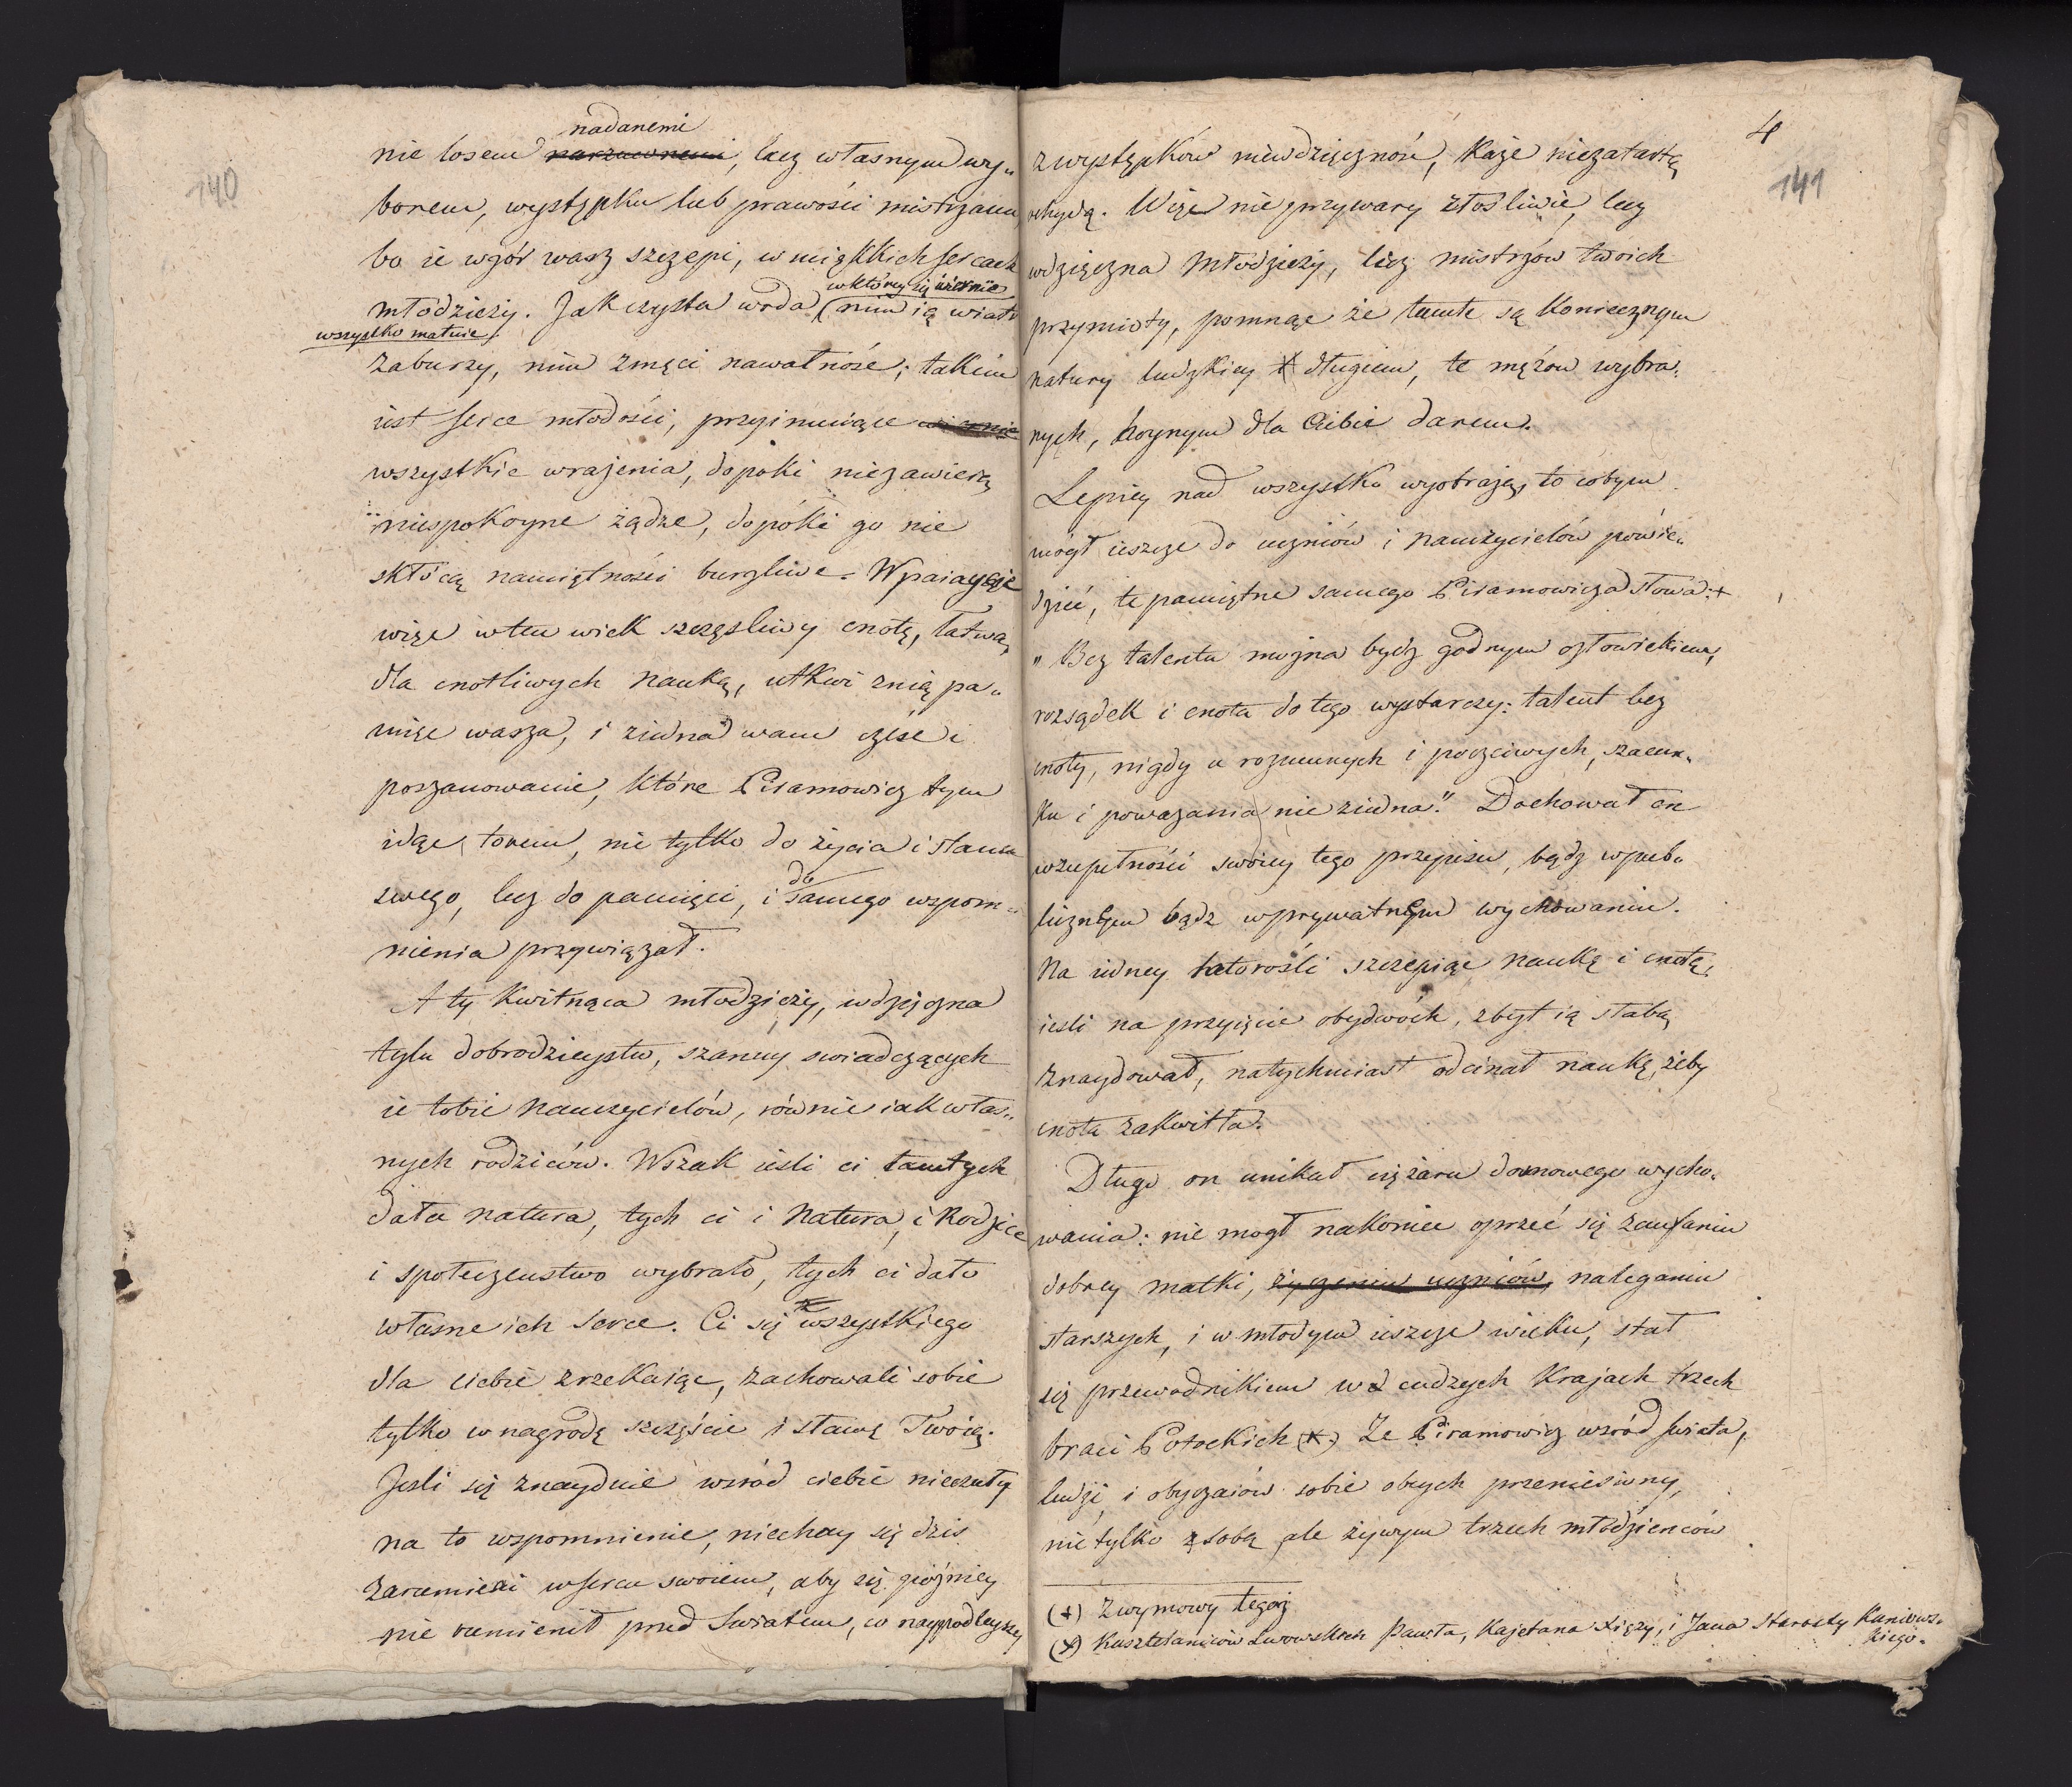 140
nadanemi
nie losem narzuconemi, lecz własnym wy„
borem, występku lub prawości mistrzami,
bo ie wzór wasz szczepi, w miękkich sercach
w którey się wiernie
młodzieży. Jak czysta woda (nim ią wiatr
wszystko maluie)
zaburzy, nim zmąci nawałność; takiem
iest serce młodości, przyimuiące wiernie
wszystkie wrażenia, dopoki niezawieią
niespokoyne żądze, dopóki go nie
skłócą namiętności burzliwe. Wpaiaycie
więc wten wiek szczęsliwy cnotę, łatwą
dla cnotliwych nauką, utkwi znią pa„
mięc wasza, i ziedna wam część i
poszanowanie, które Piramowicz tym
idąc torem, nie tylko do życia i stanu
do
swego, lecz do pamięci, i samego wspom„
nienia przywiązał.
A ty kwitnąca młodzieży, wdzięczna
tylu dobrodzieystw, szanuy swiadczących
ie tobie nauczycielów, równie iak włas„
nych rodziców. Wszak iesli ci tamtych
dała natura, tych ci i natura, i Rodzice
i społeczenstwo wybrało, tych ci dało
własne ich serce. Ci się wszystkiego
dla ciebie zrzekaiąc, zachowali sobie
tylko w nagrodę szczęście i sławę Twoią.
Jesli się znayduie wsród ciebie nieczuły
na to wspomnienie, niechay się dzis
zarumieni w sercu swoiem, aby się pożniey
nie rumienił przed swiatem, co naypodleyszą
4
141
z występków niewdzięczność, każe niezatartą
ohydą. Więc nie przywary złosliwie, lecz
wdzięczna Młodzieży, licz mistrzów twoich
przymioty, pomnąc że tamte są koniecznym
natury ludzkiey długiem, te mężow wybra„
nych, hoynym dla Ciebie darem.
Lepiey nad wszystko wyobrażą, to cobym
mógł ieszcze do uczniów i nauczycielów powie„
dzieć, te pamiętne samego Piramowicza słowa: +
„Bez talentu można bydz godnym człowiekiem,
rozsądek i cnota do tego wystarczy: talent bez
cnoty, nigdy u rozumnych i poczciwych, szacun„
ku i poważania nie ziedna." Dochował on
wzupełności swoiey tego przepisu, bądz wpub„
licznem bądz wprywatnem wychowaniu.
Na iedney latorośli szczepiąc naukę i cnotę,
iesli na przyięcie obydwóch, zbyt ią słabą
znaydował, natychmiast odcinał naukę, żeby
cnota zakwitła.
Długo on unikał ciężaru domowego wycho„
wania: nie mogł nakoniec oprzeć się zaufaniu
dobrey matki, życzeniu uczniów, naleganiu
starszych, i w młodym ieszcze wieku, stał
się przewodnikiem w cudzych krajach trzech
braci Potockich (X.) Ze Piramowicz wsród swiata,
ludzi, i obyczaiów sobie obcych przeniesiony,
nie tylko z sobą ale żywym trzech młodzienców
(+) Z wymowy tegoż
(X) Kasztelaniców Lwowskich Pawła, Kajetana Xięży, i Jana Starosty Kaniows„
kiego.